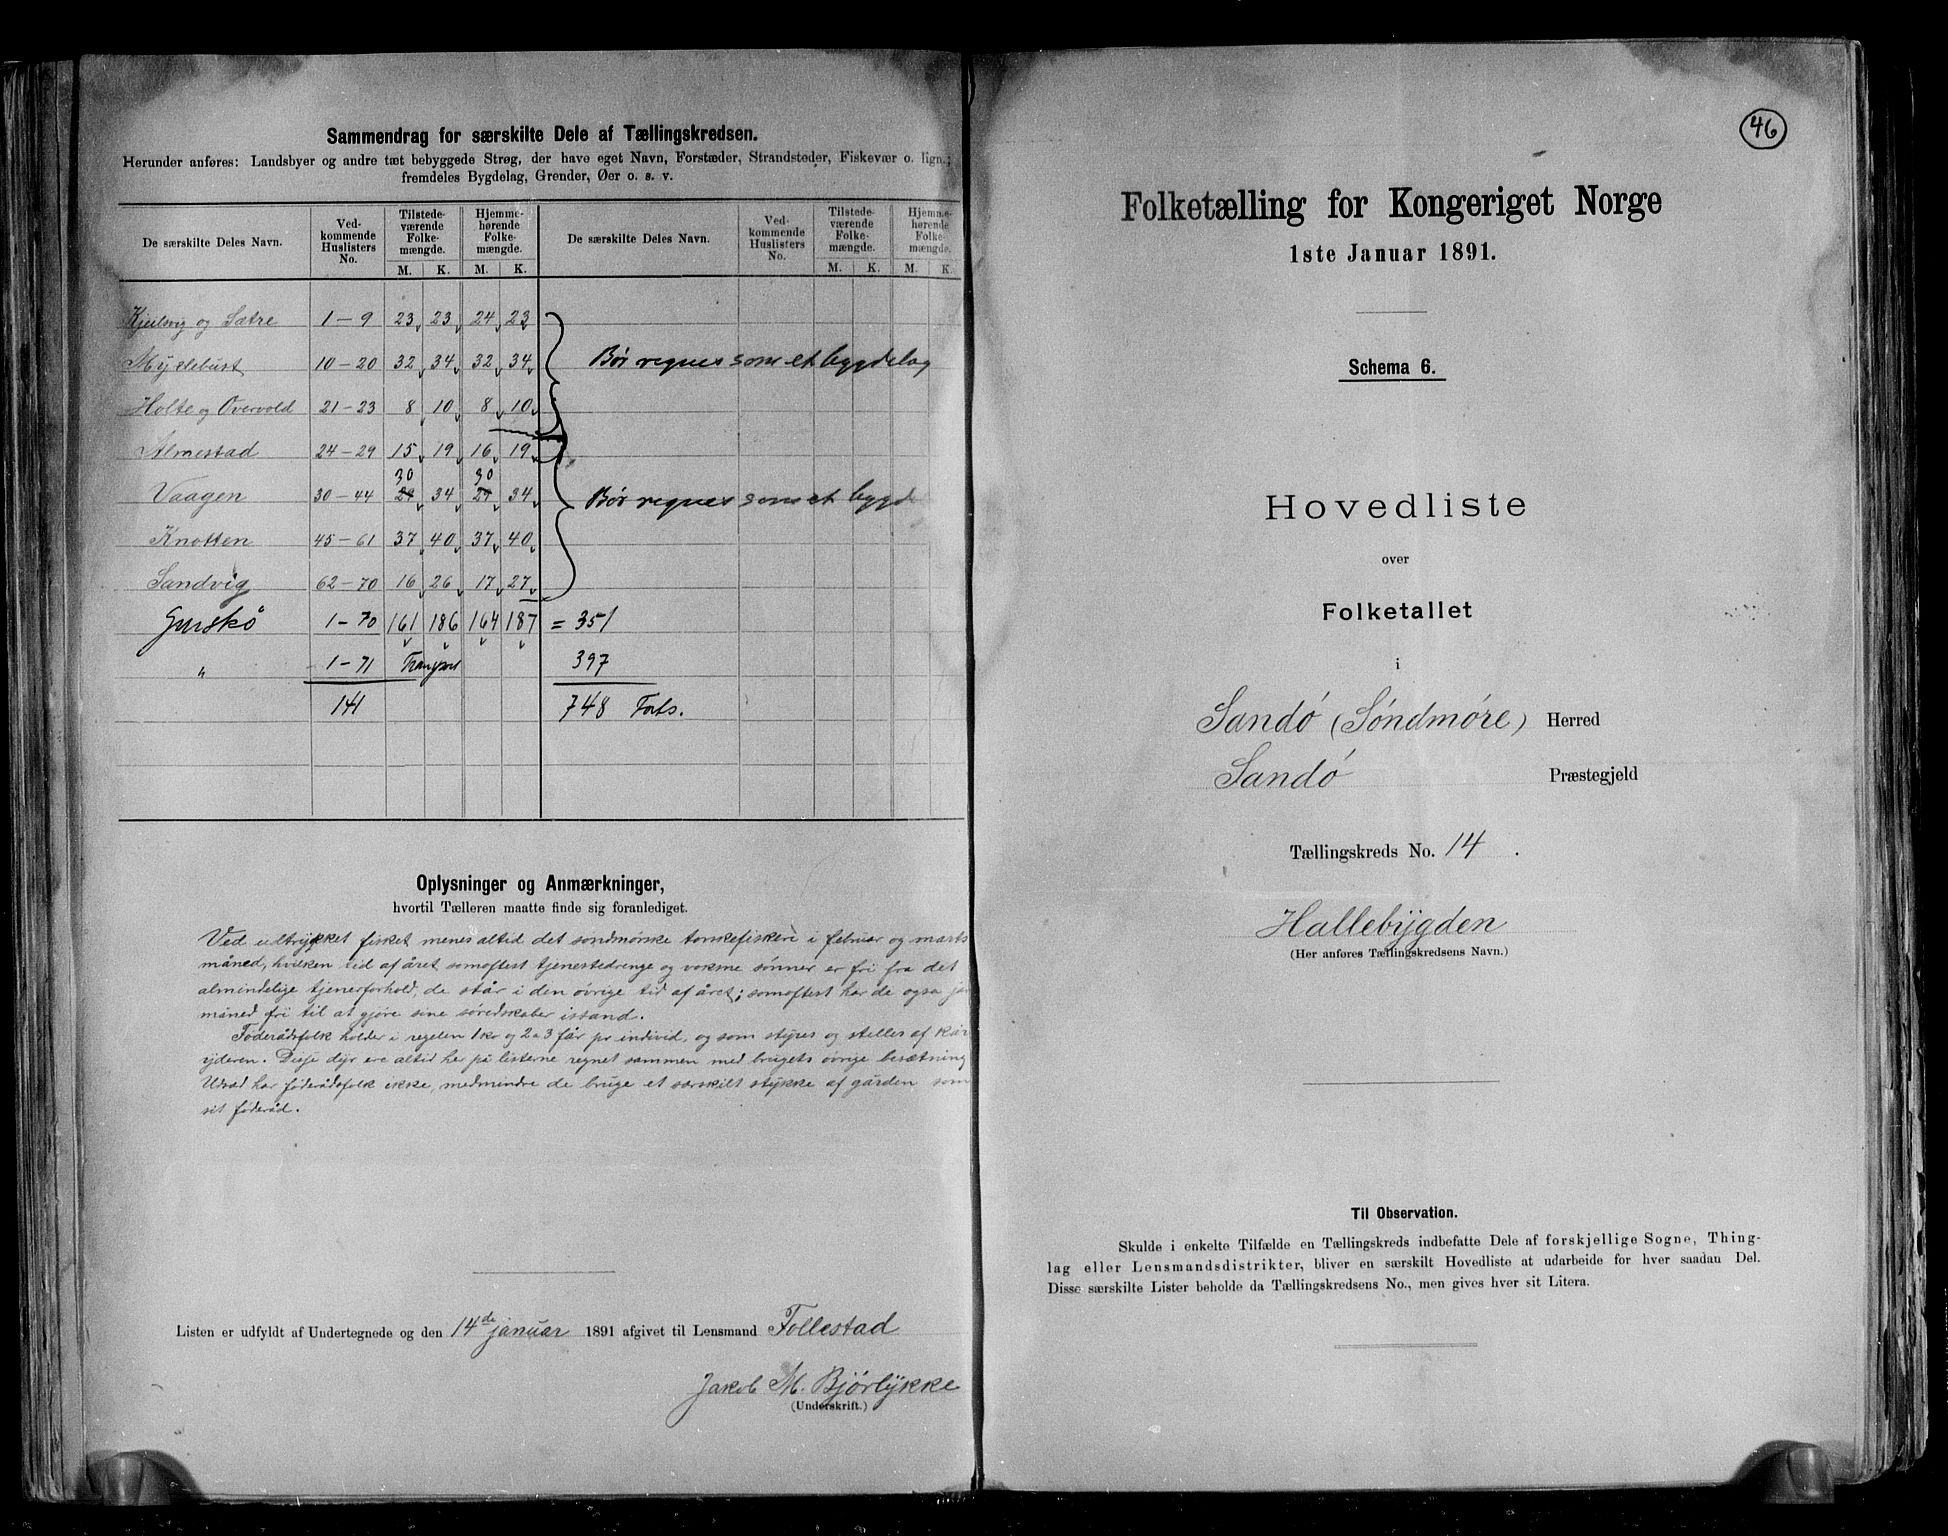 Sammendrag for særskilte Dele af Tællingskredsen.
Herunder anføres: Landsbyer og andre tæt bebyggede Strøg, der have eget Navn, Forstæder, Strandsteder, Fiskevær o. lign.;
fremdeles Bygdelag, Grender, Øer o. s. v.
De særskilte Deles Navn. Ved-kommende Huslisters No. Tilstede-værende Folke-mængde. Hjemme-hørende Folke-mængde. De særskilte Deles Navn. Ved-kommende Huslisters No. Tilstede-værende Folke-mængde. Hjemme-hørende Folke-mængde.
M. K. M. K. M. K. M. K.
Kjeilsvig og Sætre 1-9 23 23 24 23
Myklebust 10-20 32 34 32 34 Bør regnes som et bygdelag
Holte og Overvold 21-23 8 10 8 10
Almestad 24-29 15 19 16 19
30 30
Vaagen 30-44 29 34 29 34 Bør regnes som et bygde
Knotten 45-61 37 40 37 40
Sandvig 62-70 16 26 17 27
Gurskö 1-70 161 186 164 187 = 351
" 1-71 Transport 397
141 748 Forts.
Oplysninger og Anmærkninger,
hvortil Tælleren maatte finde sig foranlediget.
Ved udtrykket fisket menes altid det söndmörske torskefiskeri i februar og marts
måned, hvilken tid af året somoftest tjenestedrenge og voksne sönner er fri fra det
almindelige tjenerforhold, de står i den övrige tid af året; somoftest har de også
måned fri til at gjöre sine söredskaber istand.
Föderådsfolk holder i regelen 1 ko og 2 a 3 får pr individ, og som styres og stelles af
yderen. Disse dyr ere altid her på listerne regnet sammen med brugets övrige besætning
Udsæd har föderådsfolk ikke, medmindre de bruge et særskilt stykke af gården som
sit föderåd.
Listen er udfyldt af Undertegnede og den 14de januar 1891 afgivet til Lensmand Follestad
Jakob M. Bjørlykke
(Underskrift.)
46
Folketælling for Kongeriget Norge
1ste Januar 1891.
Schema 6.
Hovedliste
over
Folketallet
i
Sandö (Söndmöre) Herred
Sandö Præstegjeld
Tællingskreds No. 14.
Hallebygden
(Her anføres Tællingskredsens Navn.)
Til Observation.
Skulde i enkelte Tilfælde en Tællingskreds indbefatte Dele af forskjellige Sogne, Thing-
lag eller Lensmandsdistrikter, bliver en særskilt Hovedliste at udarbeide for hver saadan Del.
Disse særskilte Lister beholde da Tællingskredsens No., men gives hver sit Litera.